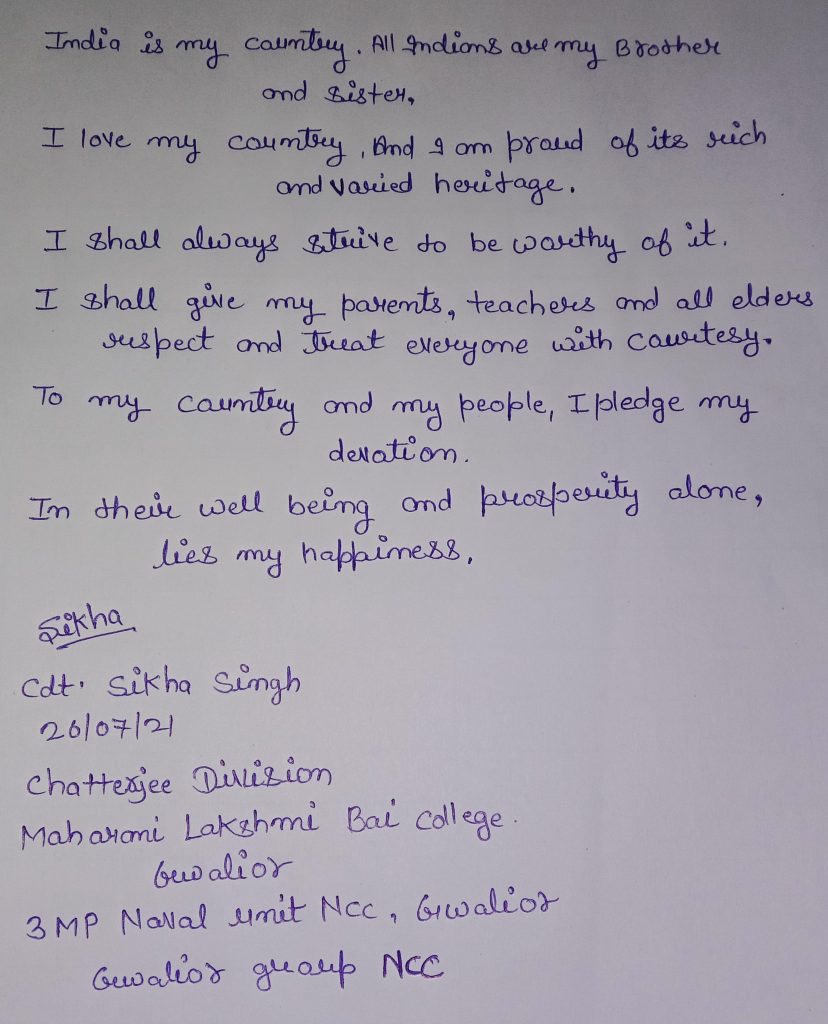 India is my country. All Indians are my Brother
and sister,
I love my country, And I am proud of its rich
and varied heritage.
I shall always strive to be worthy of it.
I shall give my parents, teachers and all elders
respect and treat everyone with courtesy.
To my country and my people, I pledge my
devotion.
In their well being and prosperity alone,
lies my happiness,
Sikha
Cdt. Sikha Singh
26/07/21
Chatterjee Division
Maharani Lakshmi Bai College.
Gwalior
3 MP Naval unit NCC, Gwalior
Gwalior group NCC